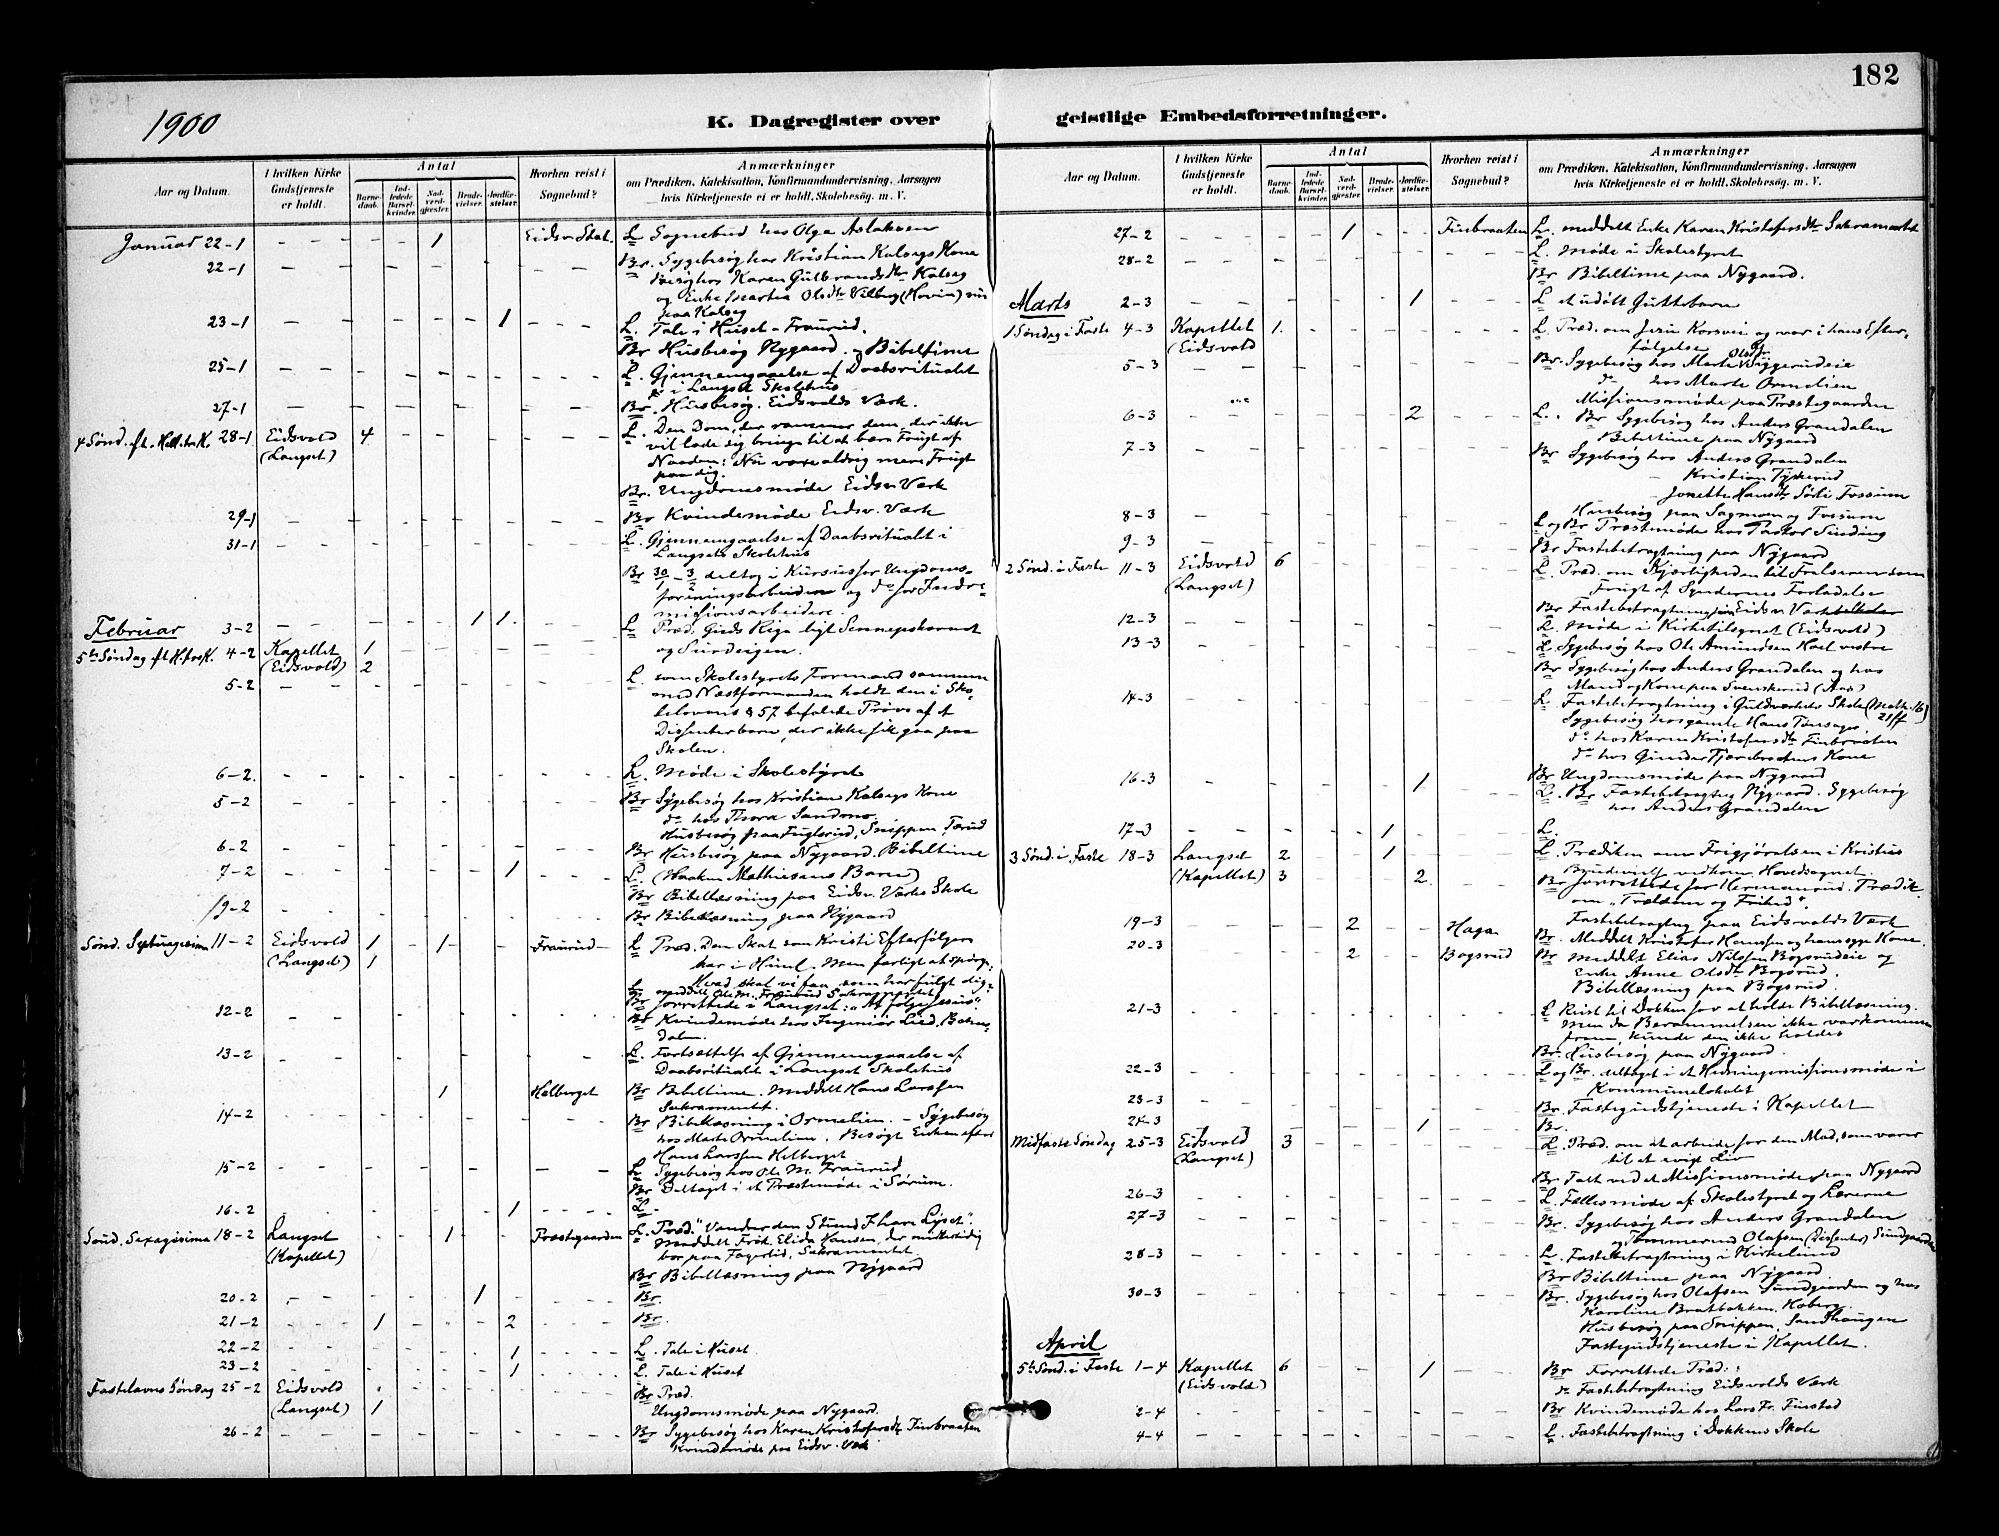 182
1900
K. Dagregister over geistlige Embedsforretninger.
Aar og Datum.
I hvilken Kirke Gudstjeneste er holdt.
Antal
Barne-daab.
Ind-ledede Barsel-kvinder.
Nad-verd-gjester.
Brude-vielser.
Jordfæ-stelser.
Hvorhen reist i Sognebud?
Anmærkninger
om Prædiken, Katekisation, Konfirmandundervisning, Aarsagen
hvis Kirketjeneste ei er holdt, Skolebesøg. m. V.
Januar 22-1 1 Eidsv. Stat. L Sognebud hos Olga Aslaksen
22-1 Br. Sygebesøg hos Kristian Kalsegs Kone
hos Karen Gulbrandsdtr Kalseg
og Enke Martea Olsdtr Vilberg (Hovin)
paa Kalseg
23-1 1 L. Tale i Huset - Fraurud.
Br Husbesøg Nygaard. Bibeltime
25-1 L. Gjennemgaaelse af Daabsritualet
i Langset Skolehus
27-1 Br. Husbesøg. Eidsvolds Værk.
4 Sønd. ft. Hell. tr. K. 28-1 Eidsvold 4 L. Den Dom, der rammer dem, der ikke
(Langset) vil lade sig bringe til at bære Frugt af
Naaden: Nu voxe aldrig mere Frugt
paa dig.
Br. Ungdomsmøde Eidsv. Værk
29-1 Br Kvindemøde Eidsv. Værk
31-1 L. Gjennemgaaelse af Daabsritualet i
Langset Skolehus
Br 30-3 deltog i Kursus for Ungdoms-
foreningsarbeidere og do for Indre-
missionsarbeidere.
Februar 3-2 1 1 L Præd. Guds Rige ligt Sennepskornet
og Surdeigen.
5te Søndag ft. H. tr. K. 4-2 Kapellet 1
(Eidsvold) 2
5-2 L. som Skolestyrets Formand sammen
med Næstformanden holdt den i Sko-
lelovens § 57 befalede Prøve af et
Dissenterbarn, der ikke fik gaa paa
Skolen.
6-2. L. Møde i Skolestyret
5-2 Br Sygebesøg hos Kristian Kalsegs Kone
do hos Thora Sandmo.
Husbesøg paa Fuglerud, Snippen, Tærud
6-2 Br Husbesøg paa Nygaard. Bibeltime
7-2 1 L. (Haaken Mathiesens Barn)
Br Bibellæsning paa Eidsv. Værks Skole
9-2 Br Bibellæsning paa Nygaard
Sønd. Septuagesima 11-2 Eidsvold 1 1 Fraurud L Præd. Den Skat som Kristi Efterfølger
(Langset) 1 har i Himl. Men farligt at spørge:
Hvad skal vi faa, som har fulgt dig.
L meddelt Ole M. Fraurud Sakramentet
Br forrettede i Langset:
12-2 Br Kvindemøde hos Ingeniør Lied, Bøhns-
dalen.
13-2 L. Fortsættelse af Gjennemgaaelse af
Daabsritualet i Langset Skolehus
1 Helberget Br Bibeltime. Meddelt Hans Larssen
Sakramentet.
14-2 Br Bibellæsning i Ormelien. - Sygebesøg
hos Marte Ormelien. Besøgt Enken efter
Hans Larssen Helberget
15-2 L Sygebesøg hos Ole M. Fraurud
Br Deltaget i et Præstemøde i Sørum.
16-2 1 L.
Sønd. Sexagesima 18-2 Langset 1 Præstegaarden L. Præd. "Vandrer den Stund I have Lyset".
(Kapellet) Meddelt Frøk. Elida Hansen, der midlertidig
bor paa Fagerlid, Sakramentet.
Br Bibellæsning paa Nygaard
20-2 1 Br.
21-2 1 2 Br.
22-2 1 L. Tale i Huset.
23-2 1 L. Tale i Huset
Fastelavns Søndag 25-2 Eidsvold Br Præd.
(Langset) 1 Ungdomsmøde paa Nygaard.
26-2 Br Sygebesøg hos Karen Kristofersdtr Finbraaten
Kvindemøde paa Eidsv. Værk
Aar og Datum.
I hvilken Kirke Gudstjeneste er holdt.
Antal
Barne-daab.
Ind-ledede Barsel-kvinder.
Nad-verd-gjester.
Brude-vielser.
Jordfæ-stelser.
Hvorhen reist i Sognebud?
Anmærkninger
om Prædiken, Katekisation, Konfirmandundervisning, Aarsagen
hvis Kirketjeneste ei er holdt, Skolebesøg. m. V.
27-2 1 Finbraaten L. meddelt Enke Karen Kristofersdtr Sakramentet
28-2 L. Møde i Skolestyret
Br Bibeltime paa Nygaard.
Marts 2-3 1 L et udøbt Guttebarn
1 Søndag i Faste 4-3 Kapellet 1. L. Præd. om Jesu Korsvei og vor i hans Efter-
(Eidsvold følgelse
5-3 Br. Sygebesøg hos Marte Olsdtr. Byggerudeie
do hos Marte Ormelien
Missionsmøde paa Præstegaarden
6-3 2 L. Br Sygebesøg hos Anders Grandalen
Bibeltime paa Nygaard
7-3 Br Sygebesøg hos Anders Grandalen
Kristian Tyskerud
Jonette Hansdtr Sørli Fossum
Husbesøg paa Sagmoen og Fossum
8-3 L og Br Præstemøde hos Pastor Sinding
9-3 Br Fastebetragtning paa Nygaard
2 Sønd. i Faste 11-3 Eidsvold 6 L. Præd. om Kjærligheden til Frelseren som
(Langset) Frugt af Syndernes Forladelse
Br Fastebetragtning paa Eidsv. Værk
12-3 L. Møde i Kirketilsynet (Eidsvold)
13-3 L Sygebesøg hos Ole Amundsen Hoel vestre
Br Sygebesøg hos Anders Grandalen og hos
Mand og Kone paa Svenskerud (Aas)
14-3 L Fastebetragtning i Guldværkets Skole (Math. 16) 21ff
Sygebesøg hos gamle Hans
do hos Karen Kristofersdtr Finbraaten
do hos Gunder Kone
16-3 1 Br Ungdomsmøde paa Nygaard
L. Br Fastebetragtng Nygaard. Sygebesøg
hos Anders Grandalen
17-3 1 L.
3 Sønd. i Faste 18-3 Langset 2 1 L. Prædiken om Frigjørelsen i Kristus
(Kapellet) 3 2 vedkom. Hovedsognet.
Br forrettede for Hermanrud. Prædik.
om "Trældom og Frihed".
Fastebetragtng paa Eidsvolds Værk
19-3 2 Haga Br. Meddelt Kristofer Hanssen og hans syge Kone.
20-3 2 Bogsrud Br Meddelt Elias Nilssen Bogsrudeie og
Enke Anne Olsdtr Bogsrud.
Bibellæsning paa Bogsrud.
21-3 L Reist til Dokken for at holde Bibellæsning.
Men da Berammelsen ikke var kommen
frem, kunde den ikke holdes
Br. Husbesøg paa Nygaard.
22-3 L og Br. deltaget i et Hedningemissionsmøde i
Kommunelokalet
23-3 Br. Fastegudstjeneste i Kapellet
24-3 1 Br.
Midfaste Søndag 25-3 Eidsvold 3 L. Præd. om at arbeide for den Mad, som varer
(Langset) til et evigt Liv
Br Talt ved et Missionsmøde paa Nygaard
26-3 L Fællesmøde af Skolestyret og Lærerne
27-3 Br. Sygebesøg hos Anders Grandalen
og Tømmerm. Olafsen (Dissenter) Sundgaarden
28-3 L. Fastebetragtning i Kirkelund
Br Bibeltime paa Nygaard
30-3 Br. Sygebesøg hos Olafsen Sundgaarden og hos
Karoline Bratbakken, Koberg.
Husbesøg paa Snippen, Sandhaugen
Fastegudstjeneste i Kapellet.
April
5te Sønd. i Faste 1-4 Kapellet 6 1 Br Forrettede Præd.:
(Eidsvold) do Fastebetragtning Eidsvolds Værk
2-4 Br Kvindemøde hos Lars Fr. Finstad
4-4 L. Fastebetragtning i Dokkens Skole